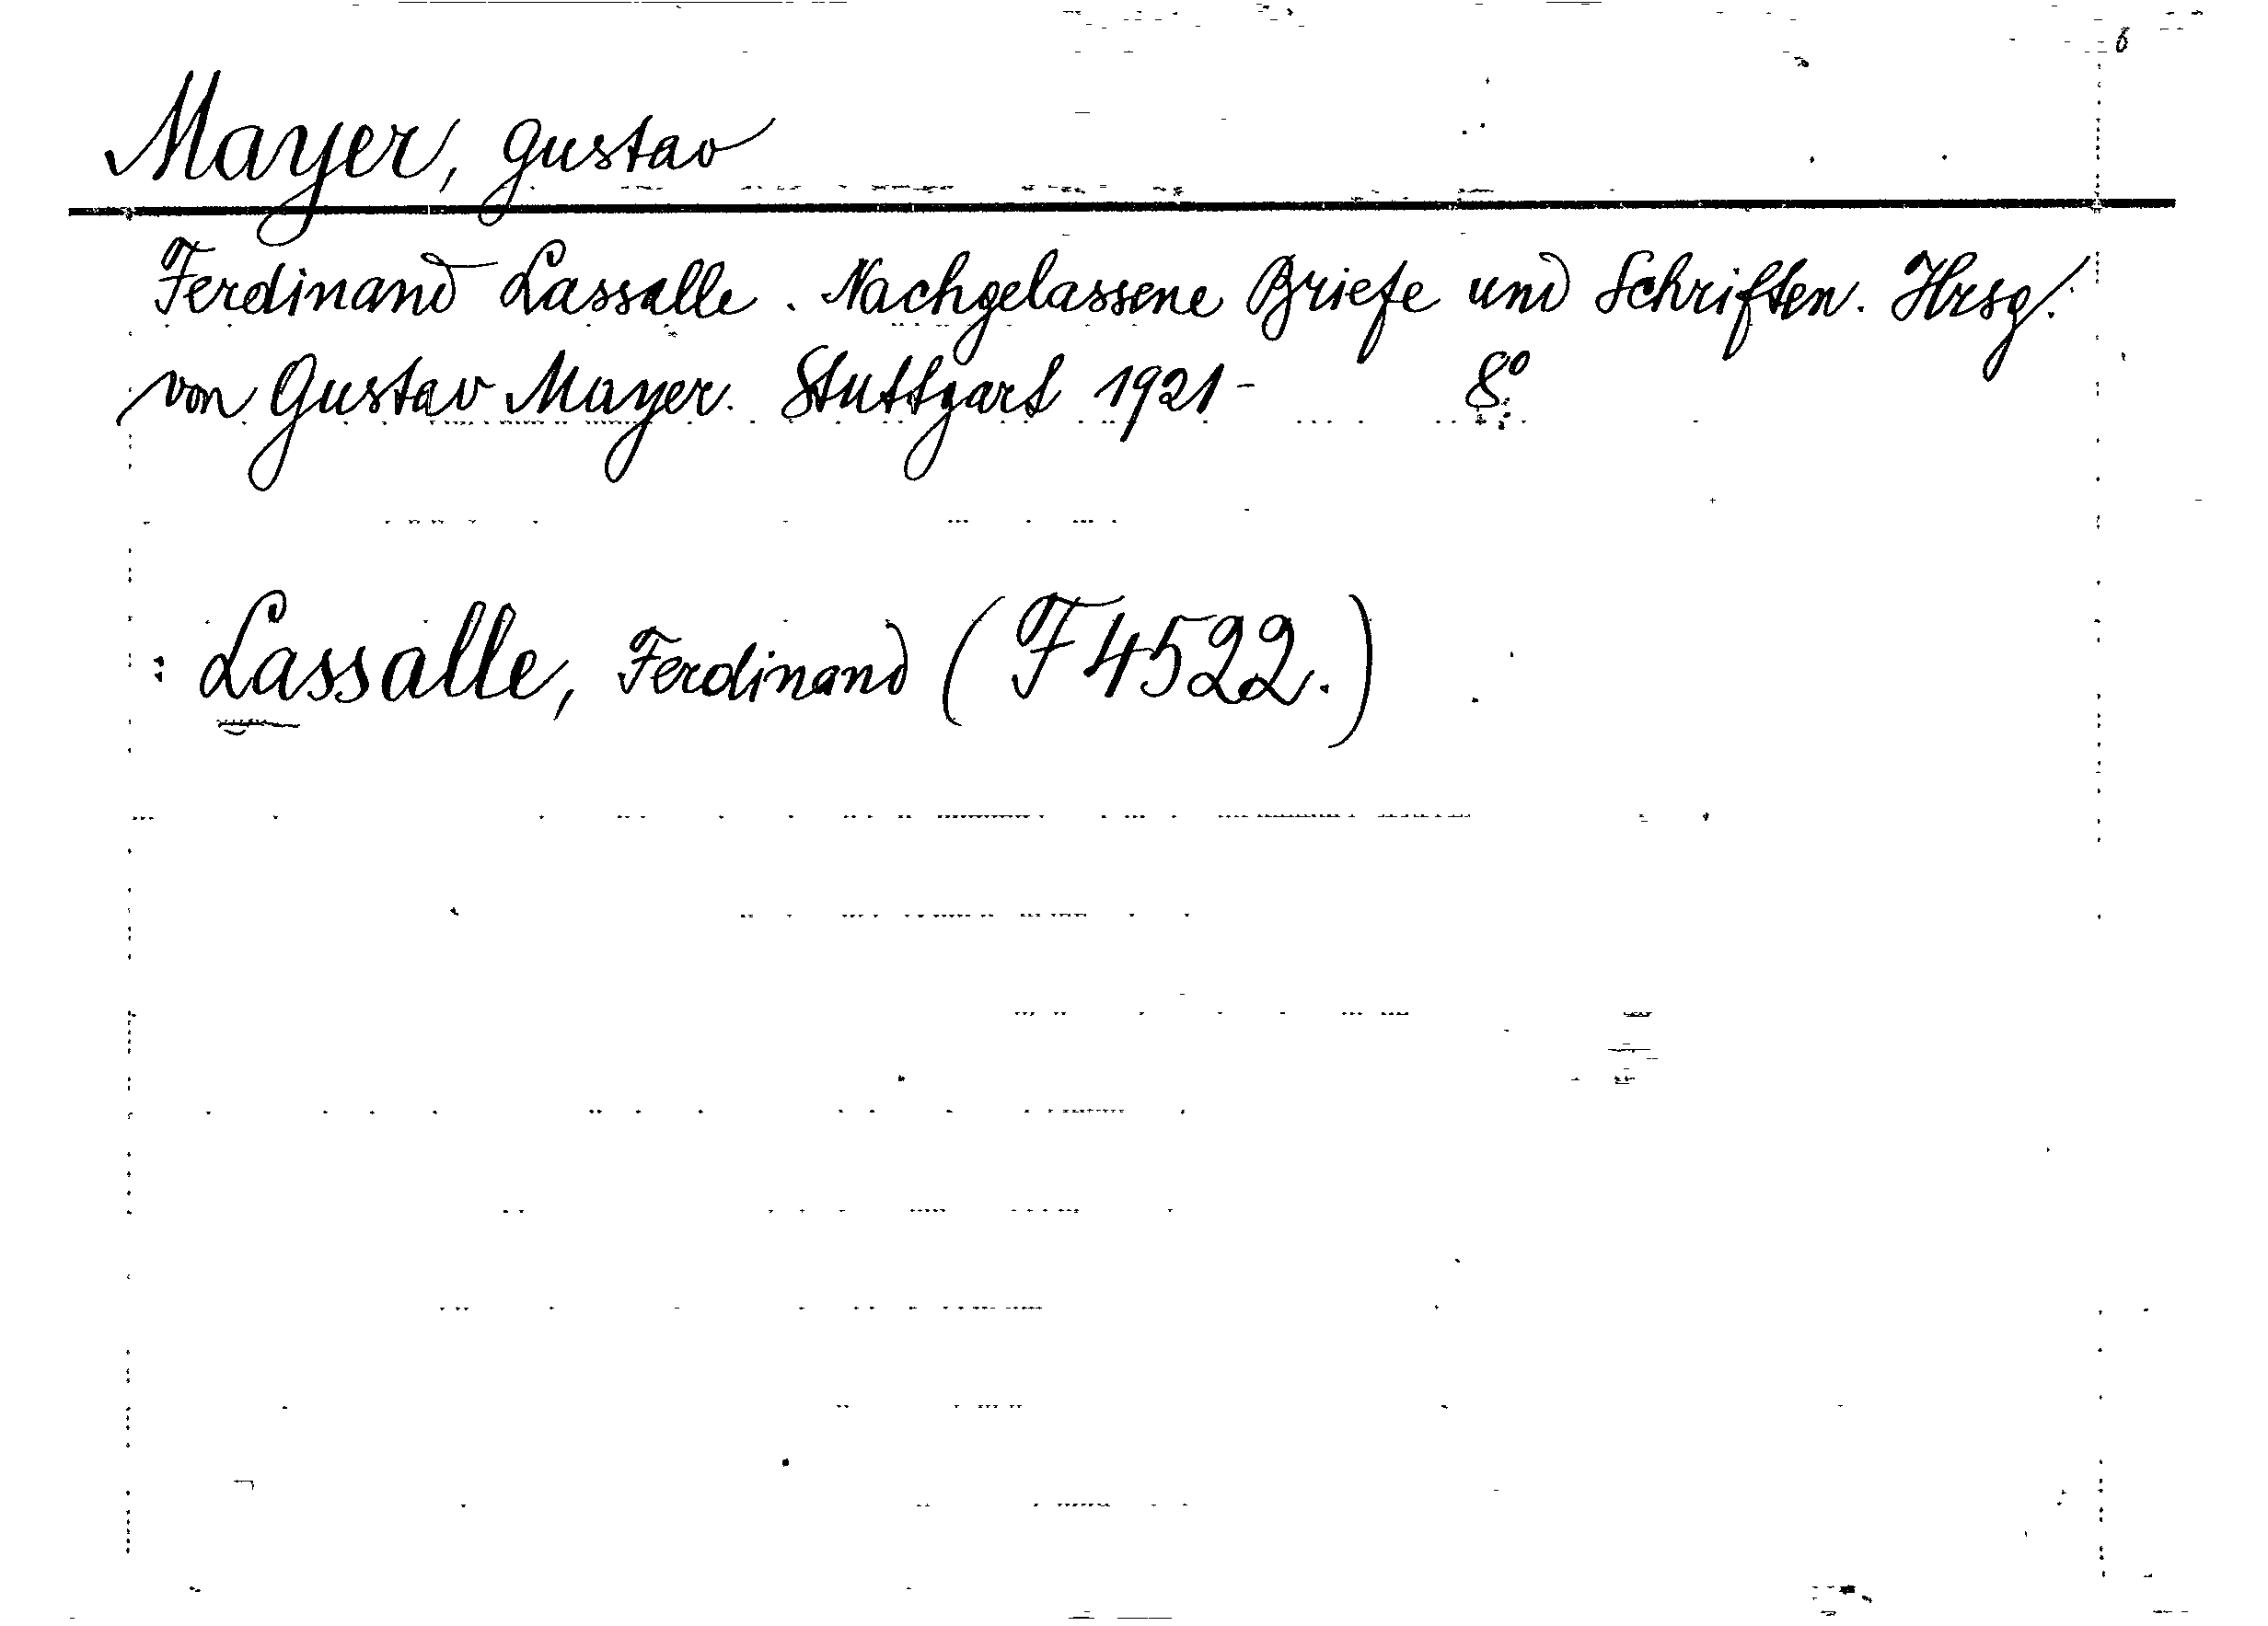 Mayer, Gustav
Ferdinand Lassalle. Nachgelassene Briefe und Schriften. Hrsg.
von Gustav Mayer. Stuttgart 1921- 8°
: Lassalle, Ferdinand (F 4522.)